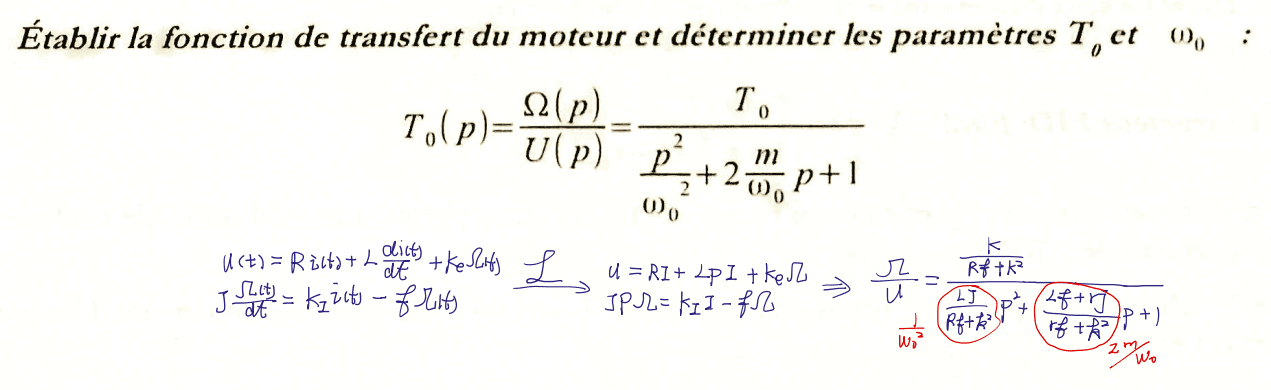 Établir la fonction de transfert du moteur et déterminer les paramètres T₀ et ω₀ :
T₀(p)=Ω(p)/U(p)=T₀/(p²/ω₀²+2 m/ω₀ p+1)
u(t) = Ri(t) + L di(t)/dt + keΩ(t)
J Ω(t)/dt = kI i(t) − fΩ(t)
L
U = RI + LpI + keΩ
JPΩ = kI I − fΩ
⇒ Ω/U = (k/(Rf+k²))/((LJ/(Rf+k²))p² + ((Lf+rJ)/(rf+k²))p+1)
1/ω₀²
2m/ω₀